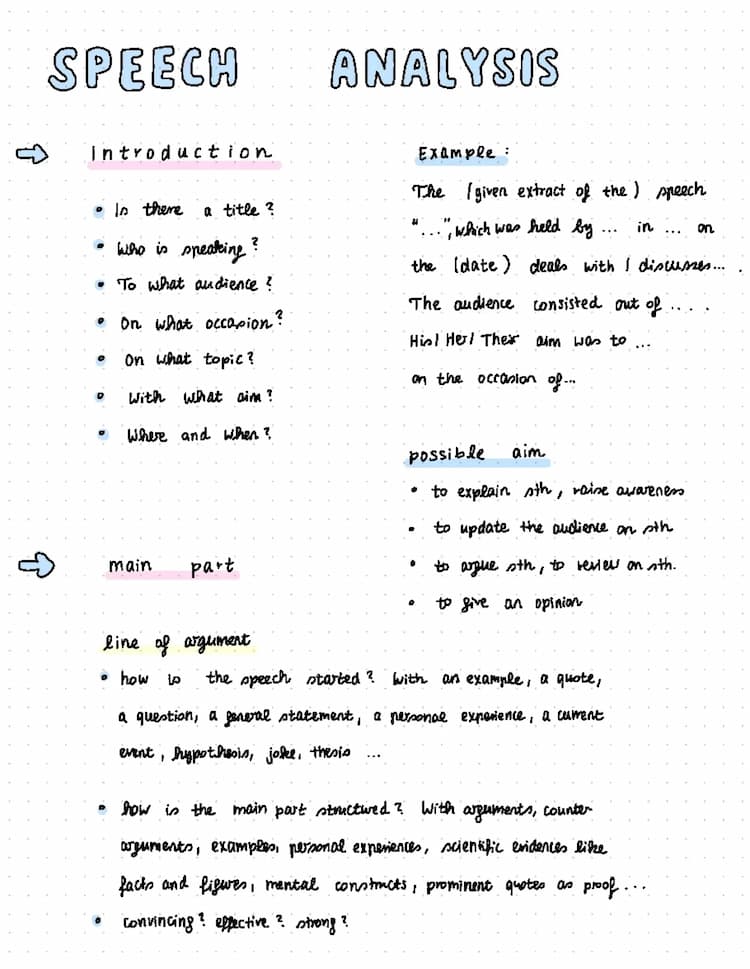 SPEECH ANALYSIS
Introduction
• Is there a title?
• Who is speaking?
• To what audience?
• On what occasion?
• On what topic?
• With what aim?
• Where and when?
Example:
The (given extract of the) speech
"...", which was held by ... in ... on
the (date) deals with / discusses... .
The audience consisted out of ....
His/ Her/ Their aim was to ...
on the occasion of...
possible aim
• to explain sth, raise awareness
• to update the audience on sth
• to argue sth, to review on sth.
• to give an opinion
main part
line of argument
• how is the speech started? With an example, a quote,
a question, a general statement, a personal experience, a current
event, hypothesis, joke, thesis ...
• how is the main part structured? With arguments, counter
arguments, examples, personal experiences, scientific evidences like
facts and figures, mental constructs, prominent quotes as proof...
• convincing? effective? strong?